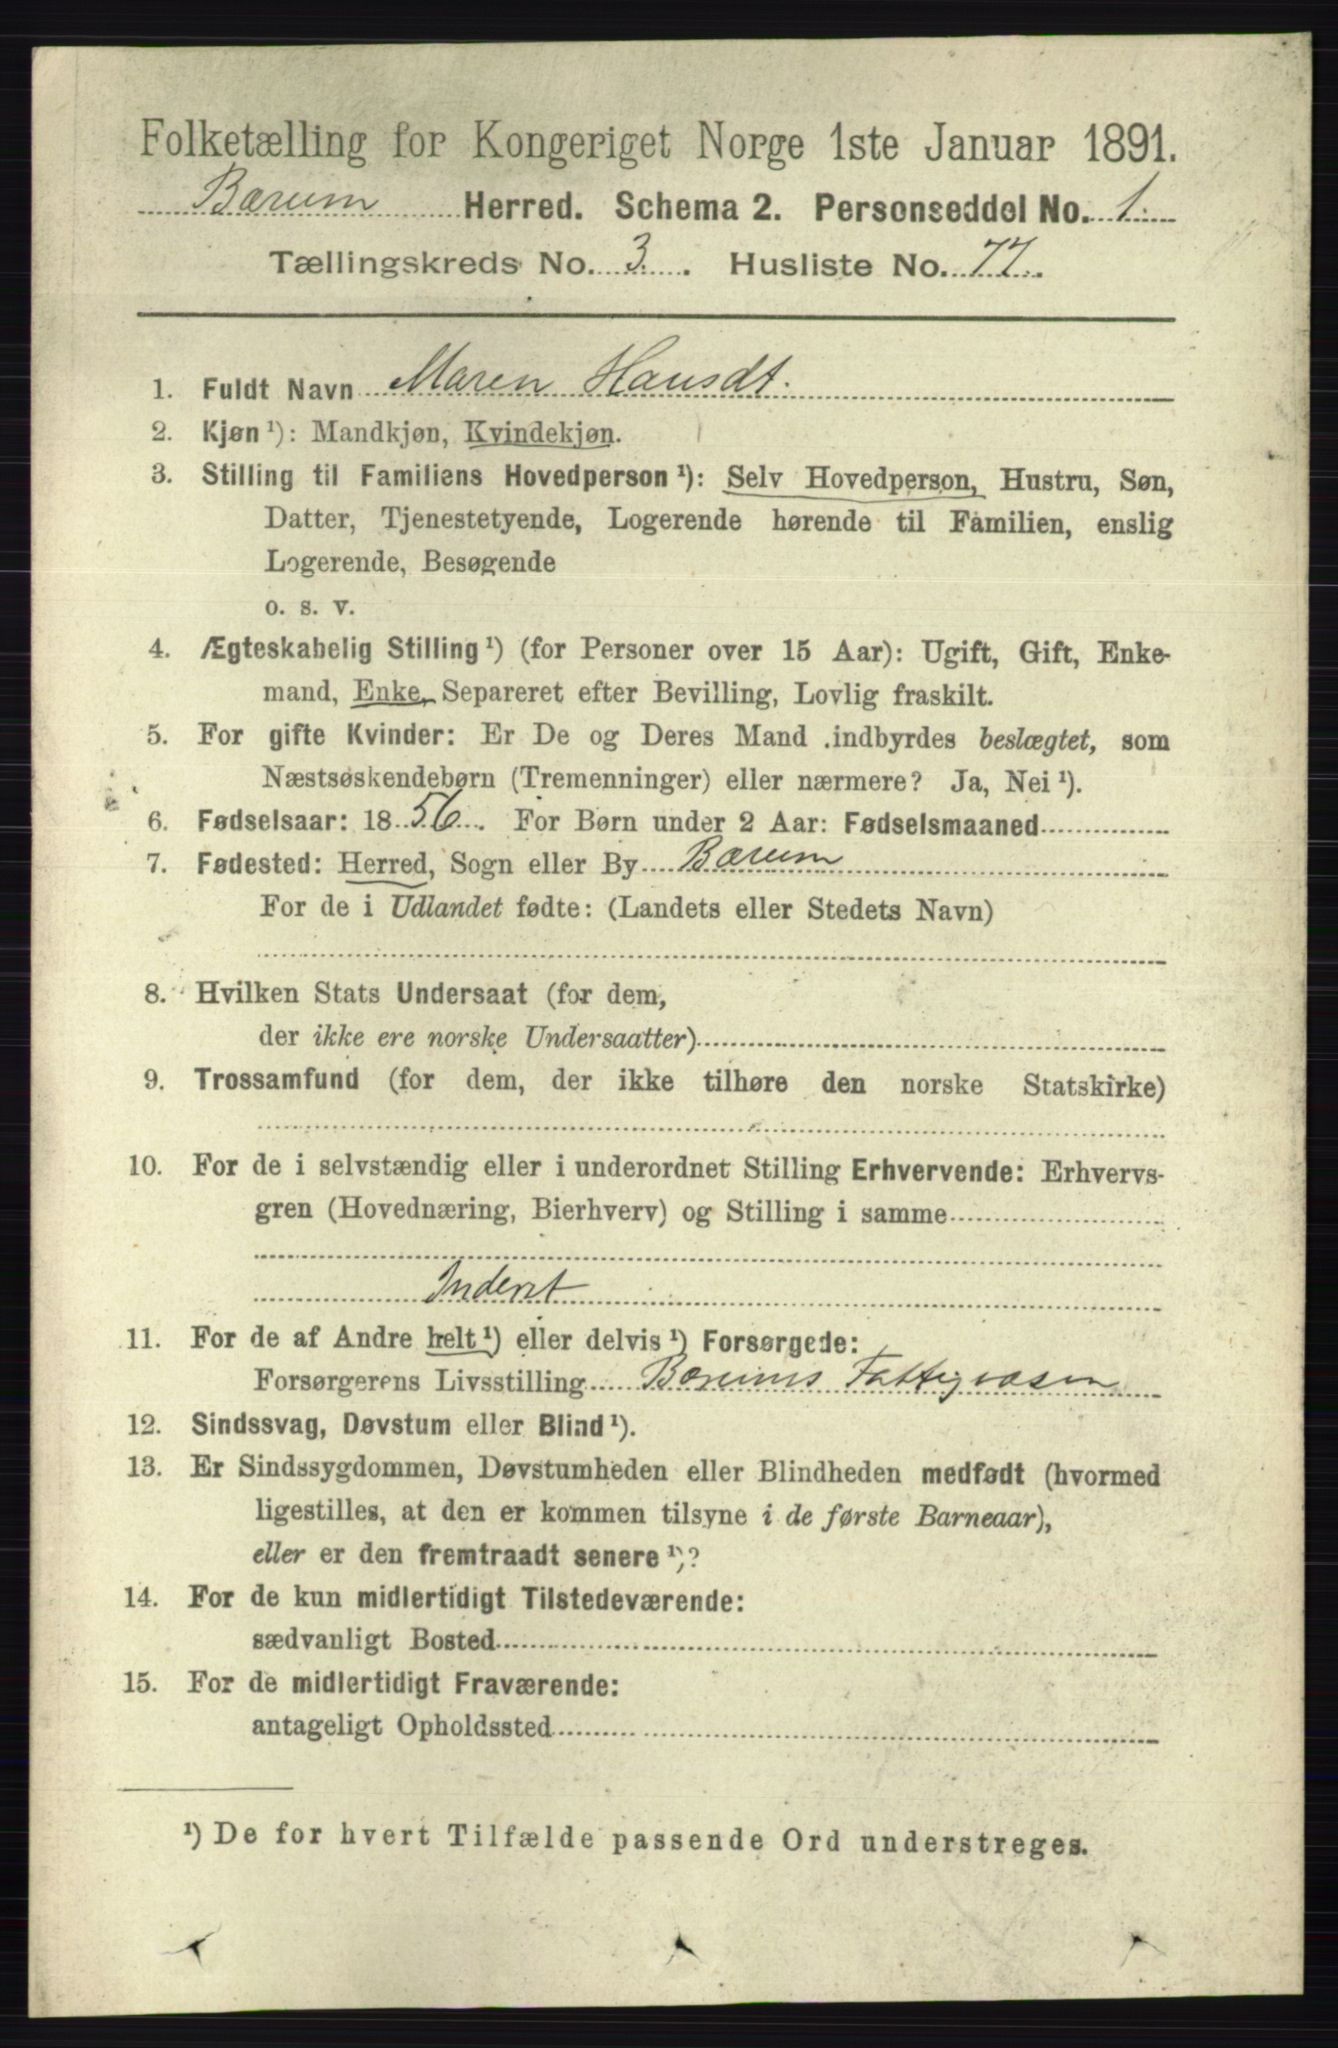 Folketælling for Kongeriget Norge 1ste Januar 1891.
Bærum Herred. Schema 2. Personseddel No. 1.
Tællingskreds No. 3. Husliste No. 77.
1. Fuldt Navn Maren Hansdt.
2. Kjøn ¹): Mandkjøn, Kvindekjøn.
3. Stilling til Familiens Hovedperson ¹): Selv Hovedperson, Hustru, Søn,
Datter, Tjenestetyende, Logerende hørende til Familien, enslig
Logerende, Besøgende
o. s. v.
4. Ægteskabelig Stilling ¹) (for Personer over 15 Aar): Ugift, Gift, Enke-
mand, Enke, Separeret efter Bevilling, Lovlig fraskilt.
5. For gifte Kvinder: Er De og Deres Mand indbyrdes beslægtet, som
Næstsøskendebørn (Tremenninger) eller nærmere? Ja, Nei ¹).
6. Fødselsaar: 1856. For Børn under 2 Aar: Fødselsmaaned
7. Fødested: Herred, Sogn eller By Bærum
For de i Udlandet fødte: (Landets eller Stedets Navn)
8. Hvilken Stats Undersaat (for dem,
der ikke ere norske Undersaatter)
9. Trossamfund (for dem, der ikke tilhøre den norske Statskirke)
10. For de i selvstændig eller i underordnet Stilling Erhvervende: Erhvervs-
gren (Hovednæring, Bierhverv) og Stilling i samme
Inderst
11. For de af Andre helt ¹) eller delvis ¹) Forsørgede:
Forsørgerens Livsstilling Bærums Fattigvæsen
12. Sindssvag, Døvstum eller Blind ¹).
13. Er Sindssygdommen, Døvstumheden eller Blindheden medfødt (hvormed
ligestilles, at den er kommen tilsyne i de første Barneaar),
eller er den fremtraadt senere ¹)?
14. For de kun midlertidigt Tilstedeværende:
sædvanligt Bosted
15. For de midlertidigt Fraværende:
antageligt Opholdssted
¹) De for hvert Tilfælde passende Ord understreges.